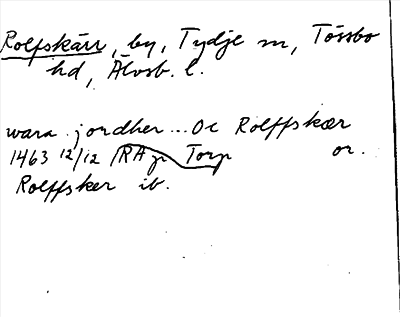 Rolfskärr, by, Tydje sn, Tössbo
hd, Älvsb. l.
wara jordher... Oc Rolffskær
1463 12/12 RAp Torp or.
Rolffsker ib.